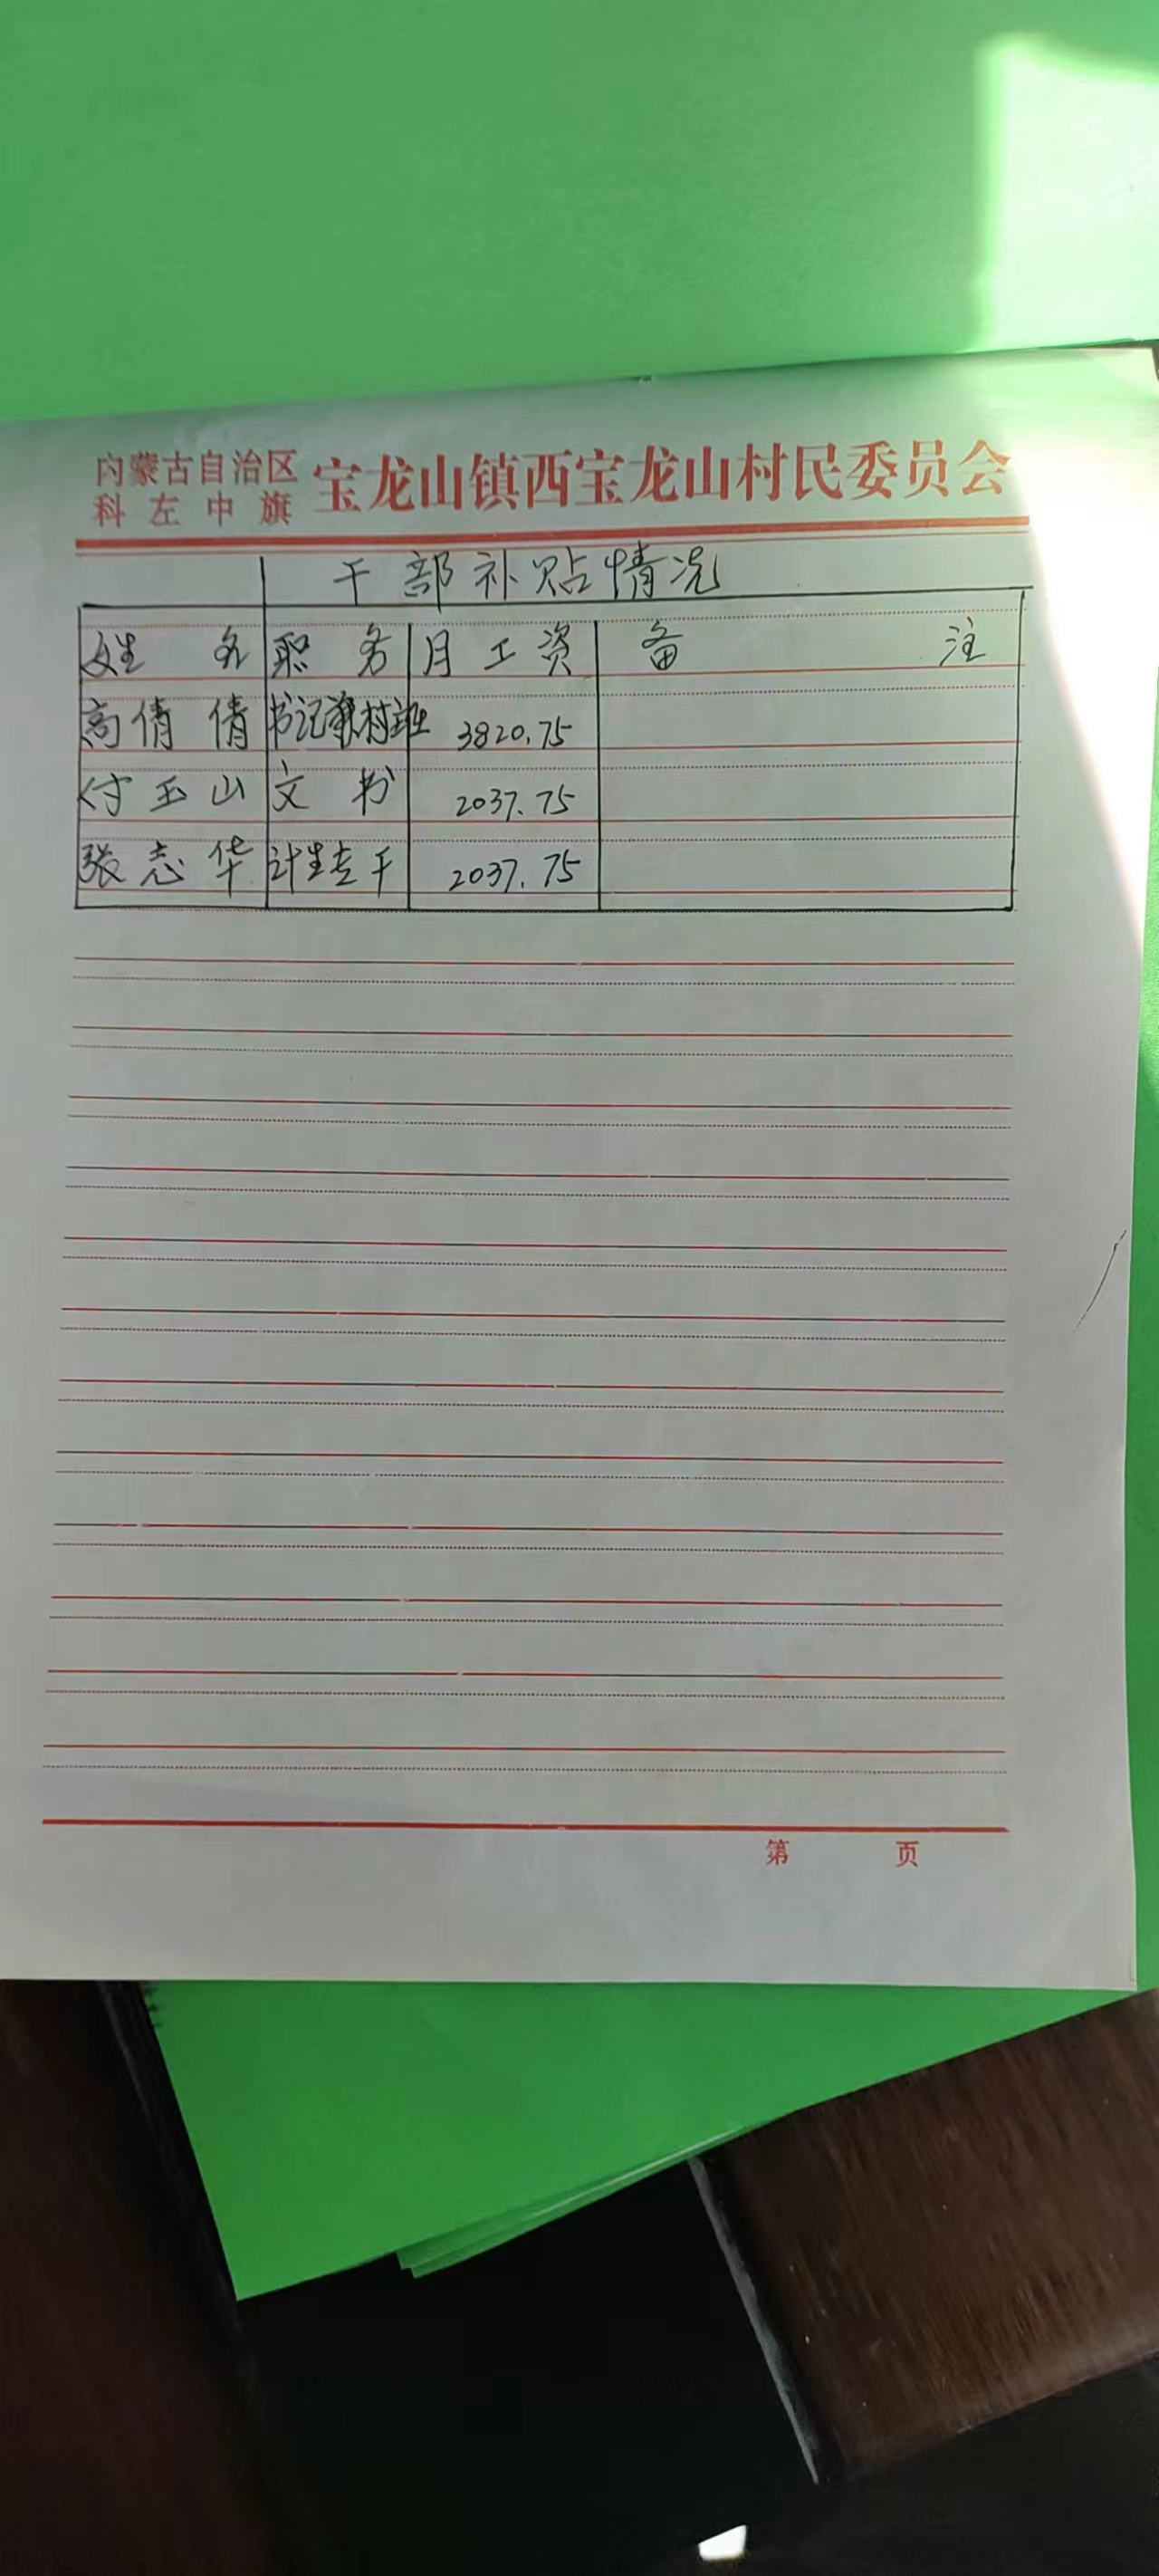 内蒙古自治区
科左中旗
宝龙山镇西宝龙山村民委员会
干部补贴情况
姓名 职务 月工资 备注
高倩倩 书记兼村主任 3820.75
付玉山 文书 2037.75
张志华 计生专干 2037.75
第 页